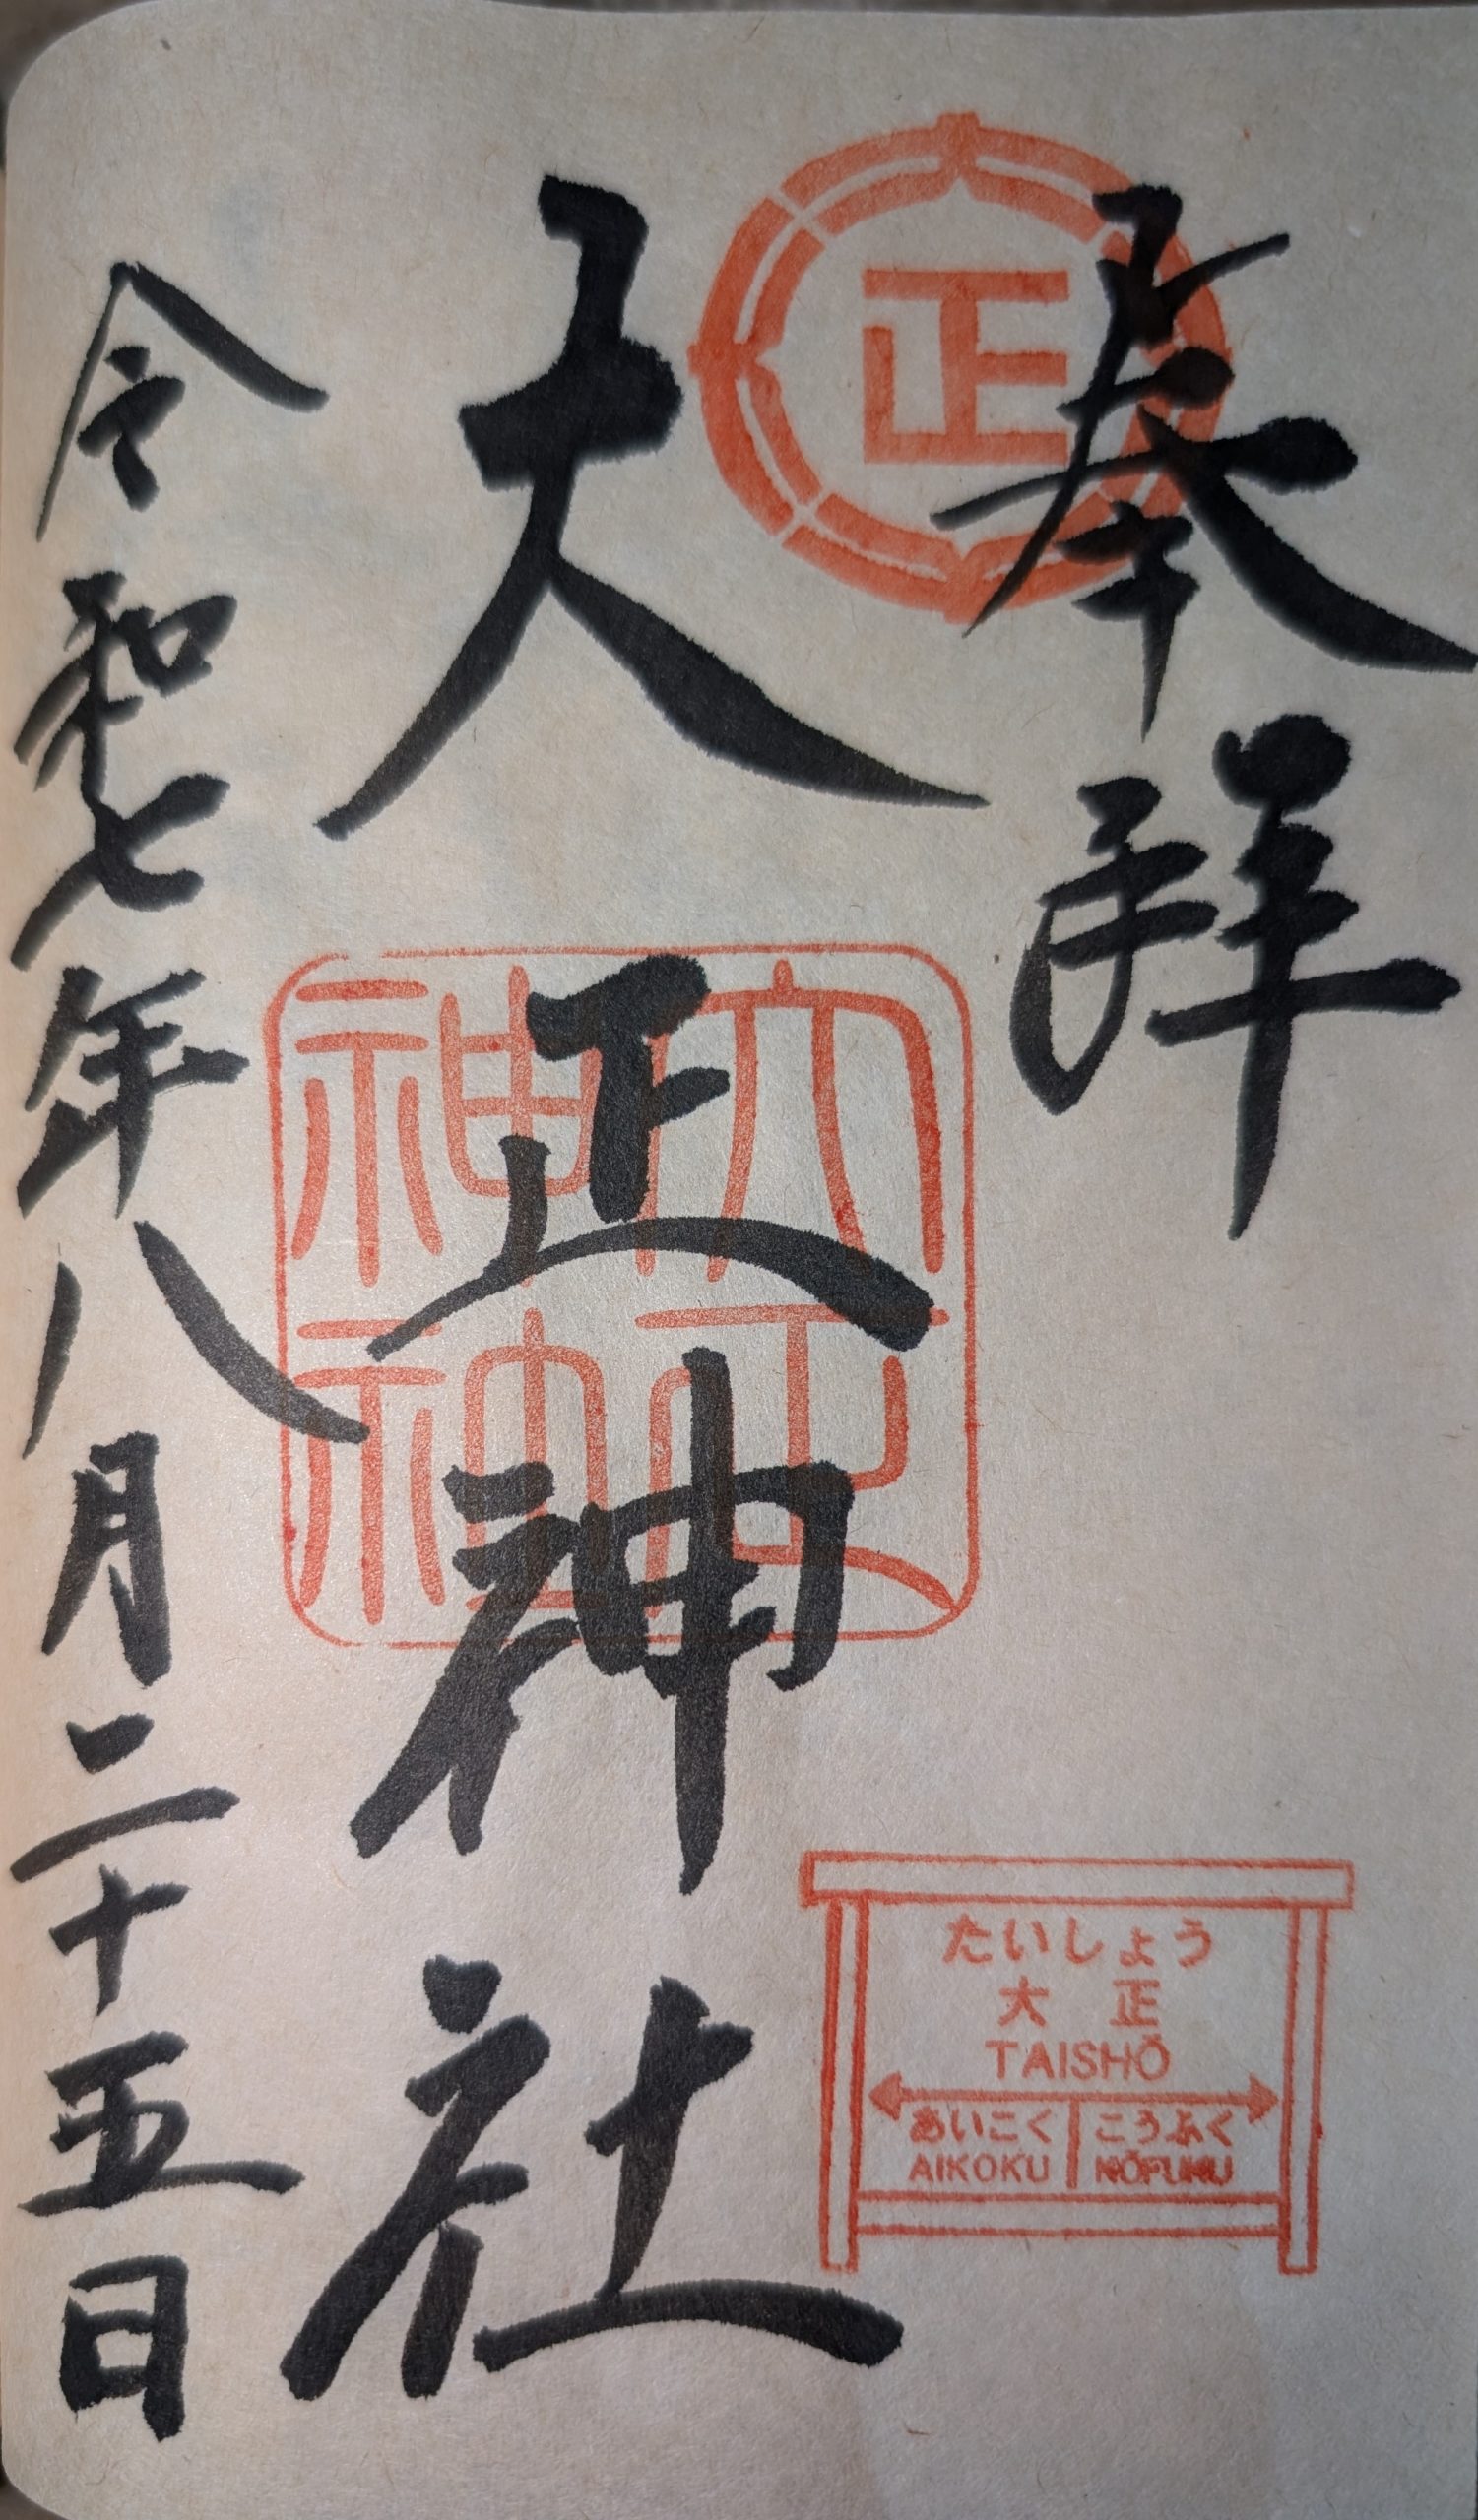 奉拜
正
大正神社
大正神社
令和七年八月二十五日
たいしょう
大正
TAISHŌ
あいこく
こうふく
AIKOKU
KŌFUKU